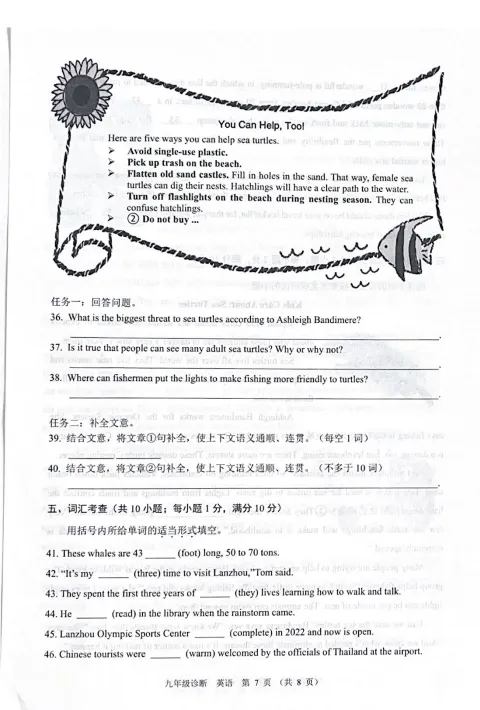 You Can Help, Too!
Here are five ways you can help sea turtles.
➢ Avoid single-use plastic.
➢ Pick up trash on the beach.
➢ Flatten old sand castles. Fill in holes in the sand. That way, female sea
turtles can dig their nests. Hatchlings will have a clear path to the water.
➢ Turn off flashlights on the beach during nesting season. They can
confuse hatchlings.
➢ ② Do not buy ...
任务一：回答问题。
36. What is the biggest threat to sea turtles according to Ashleigh Bandimere?
37. Is it true that people can see many adult sea turtles? Why or why not?
38. Where can fishermen put the lights to make fishing more friendly to turtles?
任务二：补全文意。
39. 结合文意，将文章①句补全，使上下文语义通顺、连贯。（每空 1 词）
40. 结合文意，将文章②句补全，使上下文语义通顺、连贯。（不多于 10 词）
五、词汇考查（共 10 小题；每小题 1 分，满分 10 分）
用括号内所给单词的适当形式填空。
41. These whales are 43 ______ (foot) long, 50 to 70 tons.
42. “It’s my ______ (three) time to visit Lanzhou,” Tom said.
43. They spent the first three years of ______ (they) lives learning how to walk and talk.
44. He ______ (read) in the library when the rainstorm came.
45. Lanzhou Olympic Sports Center ______ (complete) in 2022 and now is open.
46. Chinese tourists were ______ (warm) welcomed by the officials of Thailand at the airport.
九年级诊断 英语 第 7 页 （共 8 页）